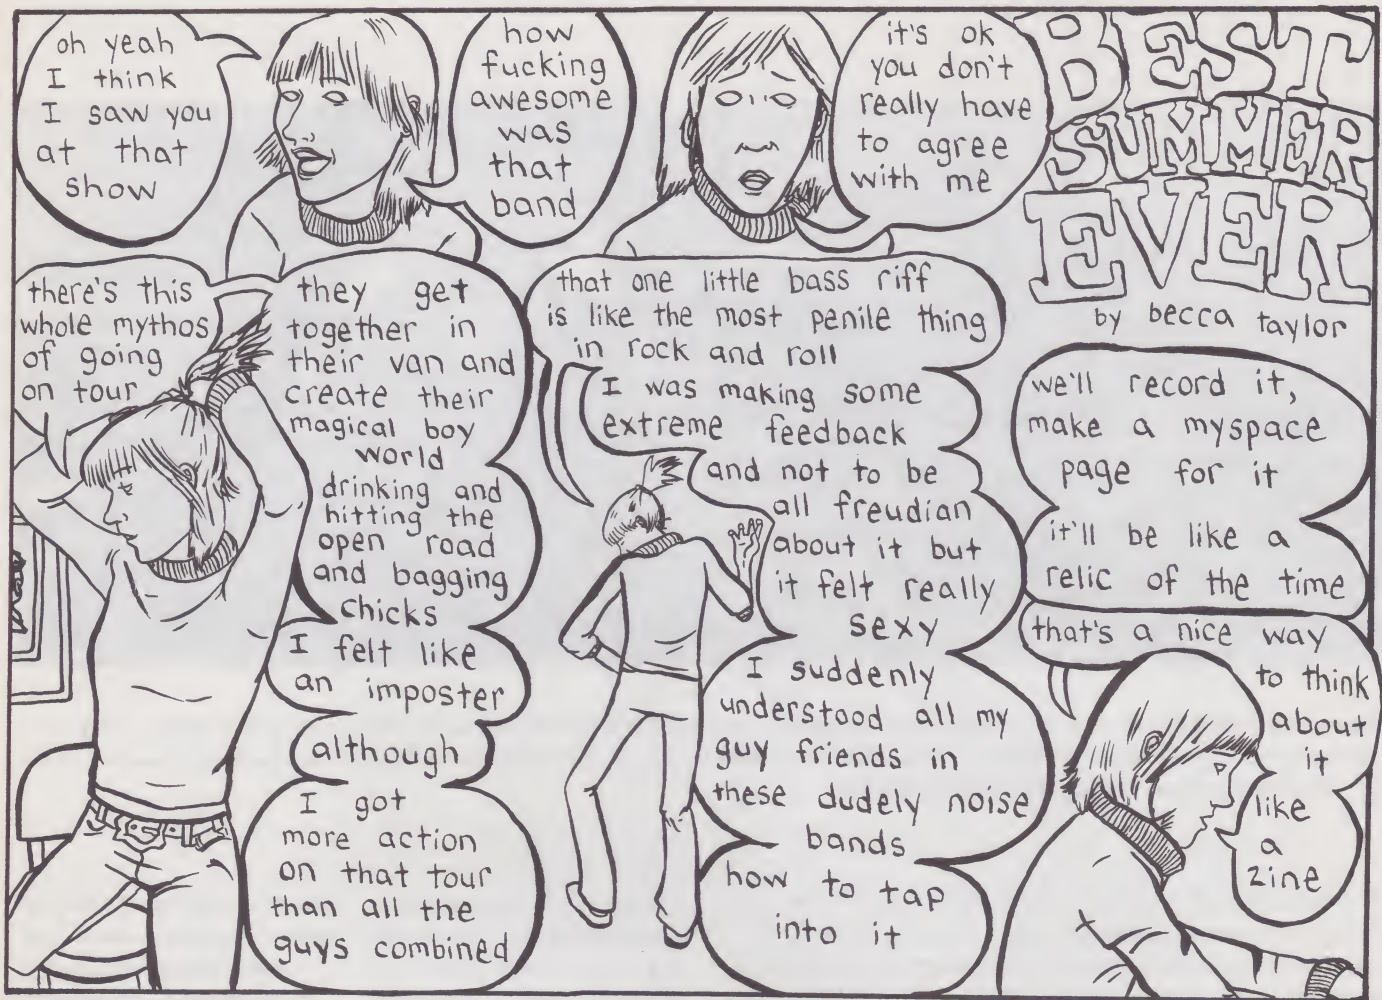 oh yeah
I think
I saw you
at that
show
how
fucking
awesome
was
that
band
it's ok
you don't
really have
to agree
with me
BEST
SUMMER
EVER
by becca taylor
there's this
whole mythos
of going
on tour
they get
together in
their van and
create their
magical boy
world
drinking and
hitting the
open road
and bagging
chicks
I felt like
an imposter
although
I got
more action
on that tour
than all the
guys combined
that one little bass riff
is like the most penile thing
in rock and roll
I was making some
extreme feedback
and not to be
all freudian
about it but
it felt really
sexy
I suddenly
understood all my
guy friends in
these dudely noise
bands
how to tap
into it
we'll record it,
make a myspace
page for it
it'll be like a
relic of the time
that's a nice way
to think
about
it
like
a
zine